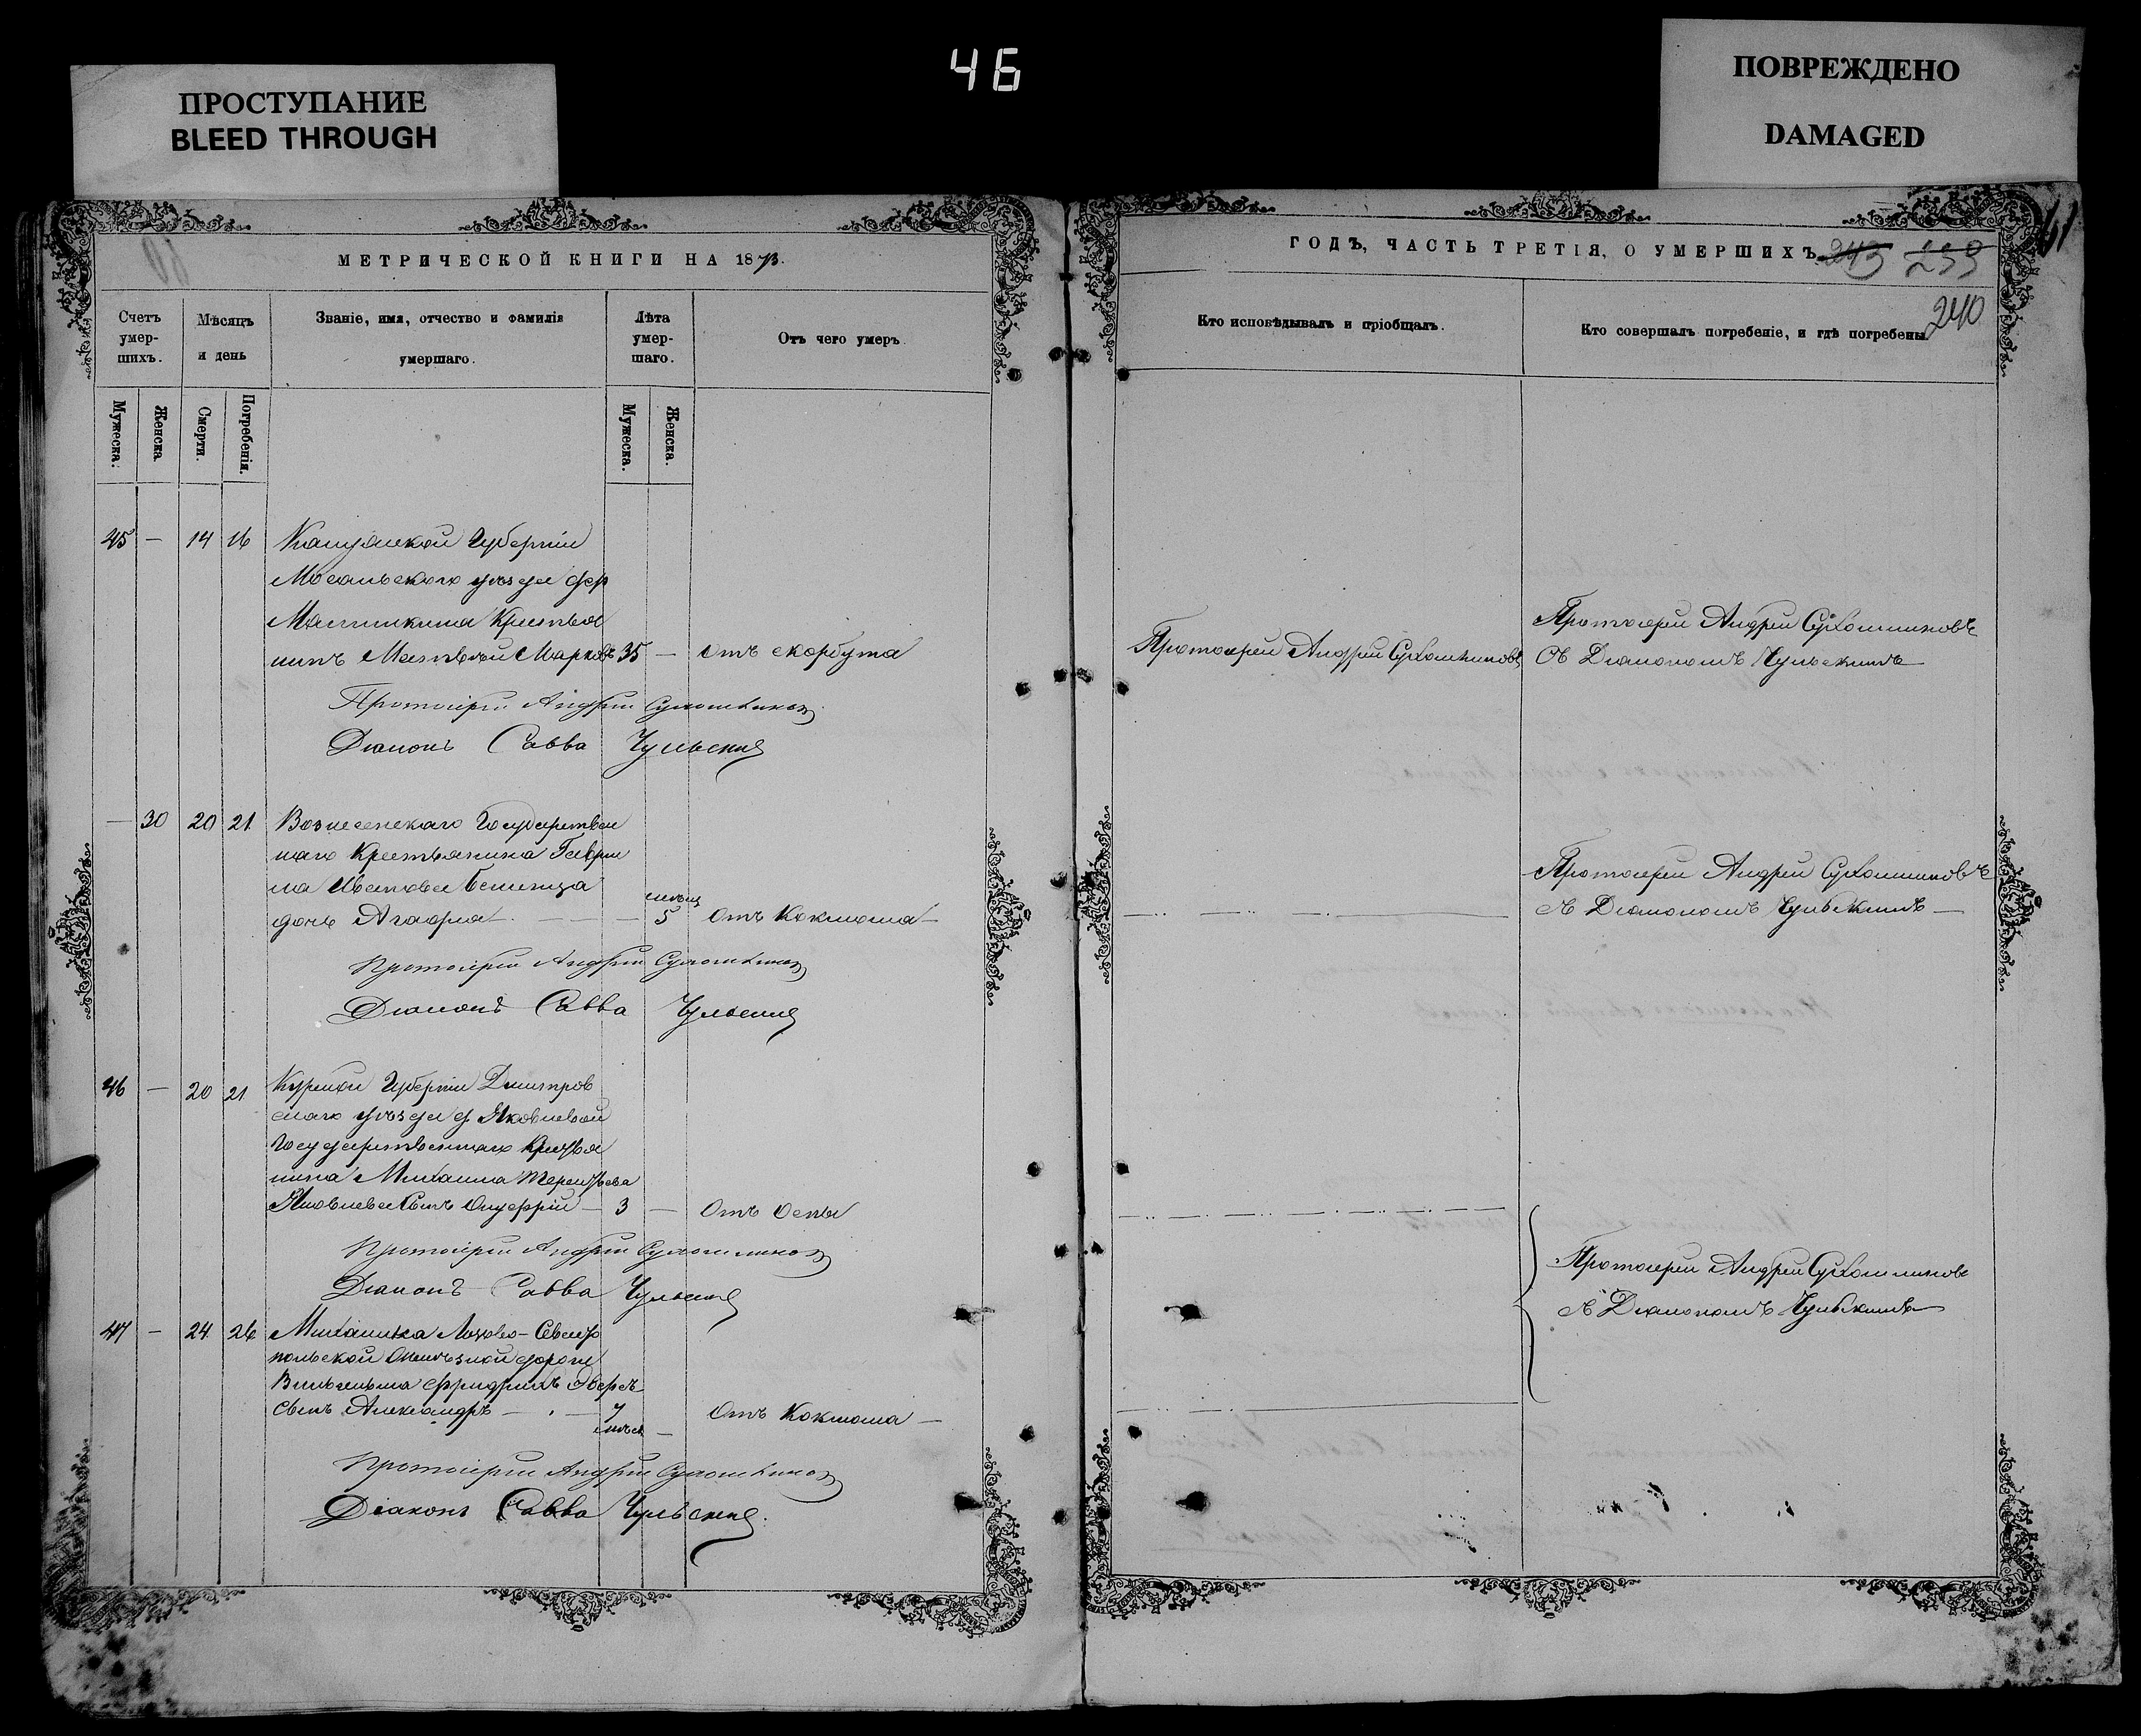 46
ПРОСТУПАНИЕ
BLEED THROUGH
ПОВРЕЖДЕНО
DAMAGED
МЕТРИЧЕСКОЙ КНИГИ НА 1873.
Счетъ умер-шихъ.
Мѣсяцъ и день
Званіе, имя, отчество и фамилія умершаго.
Лѣта умер-шаго.
Отъ чего умеръ.
Мужеска.
Женска
Смерти.
Погребенія.
Мужеска.
Женска.
45 — 14 16 Калужской Губерніи
Мосальскаго уѣзда дер
Крестья
нинъ Матвѣй Марковъ 35 — отъ скорбута
Протоіерей Андрей Сухомлиновъ
Діаконъ Савва Чульскій
— 30 20 21 Вознесенскаго Государствен
наго Крестьянина Гаврі
ла
мѣсяц
дочь Агафія — 5 отъ Коклюша
Протоіерей Андрей Сухомлиновъ
Діаконъ Савва Чульскій
46 — 20 21 Курской Губерніи Дмитров
скаго уѣзда д Яковлевой
Государственнаго Крестья
нина Михаила Терентьева
Яковлева Сынъ — 3 — Отъ Оспы
Протоіерей Андрей Сухомлиновъ
Діаконъ Савва Чульскій
47 — 24 26 Механика Лозово-Севасто
польской желѣзной дороги
Вильгельма Фридрихъ
Сынъ Александръ — 7 Отъ Коклюша —
мѣся —
Протоіерей Андрей Сухомлиновъ
Діаконъ Савва Чульскій
ГОДЪ, ЧАСТЬ ТРЕТІЯ, О УМЕРШИХЪ.
243 239
240
61
Кто исповѣдывалъ и пріобщалъ.
Кто совершалъ погребеніе, и гдѣ погребены.
Протоіерей Андрей Сухомлиновъ
Протоіерей Андрей Сухомлиновъ
Съ Діакономъ Чульскимъ
Протоіерей Андрей Сухомлиновъ
съ Діакономъ Чульскимъ —
Протоіерей Андрей Сухомлиновъ
съ Діакономъ Чульскимъ